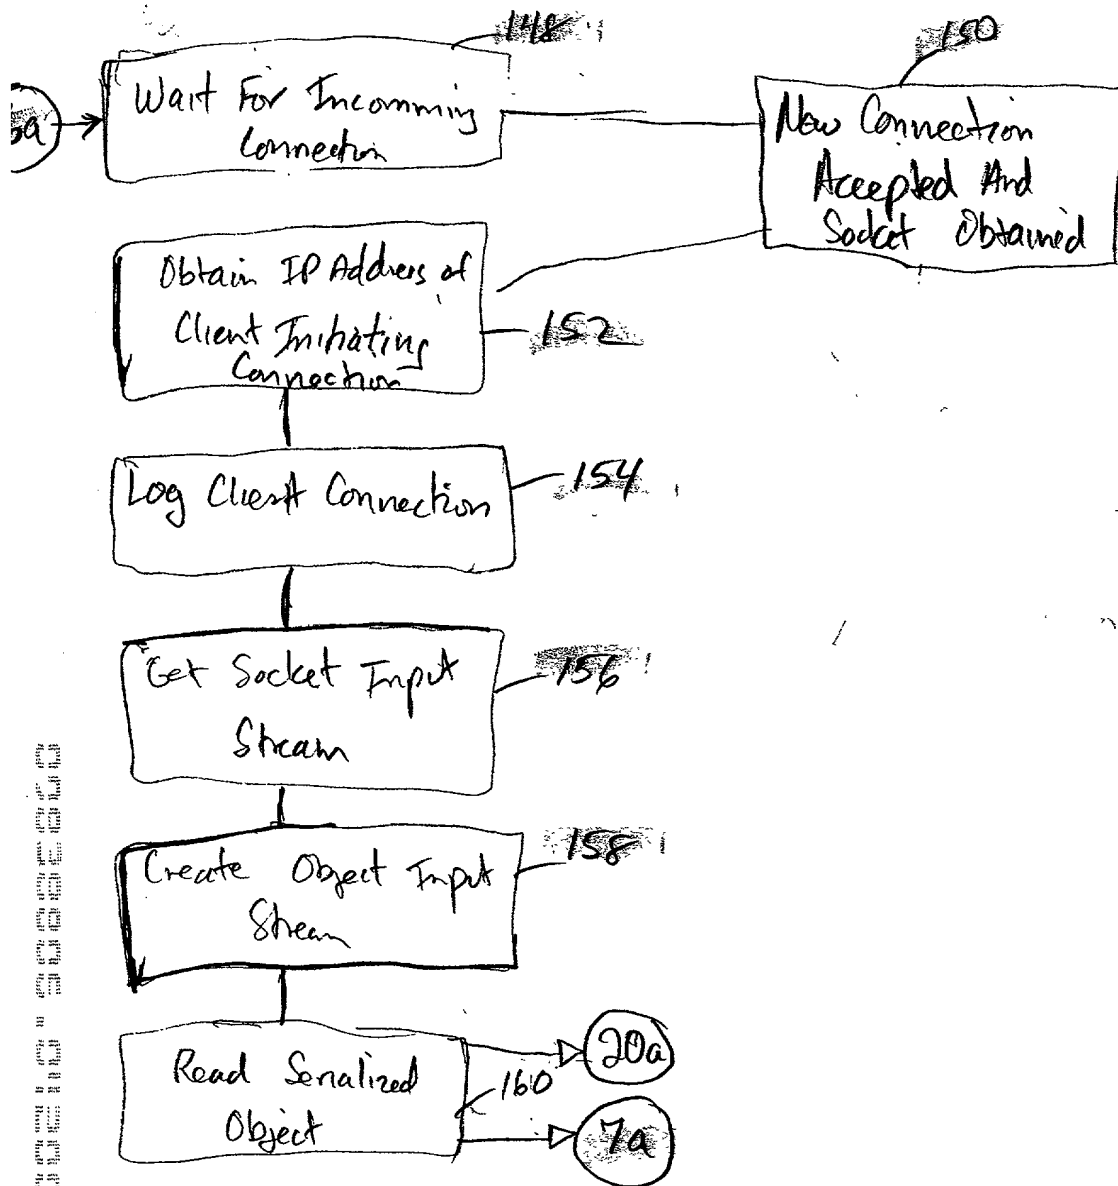 148
150
Wait For Incomming
Connection
New Connection
Accepted And
Socket Obtained
Obtain IP Address of
Client Initiating
Connection
152
Log Client Connection
154
Get Socket Input
Stream
156
Create Object Input
Stream
158
Read Serialized
Object
160
20a
7a